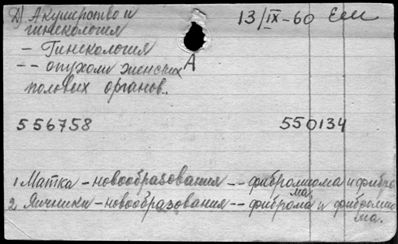 Д) Акушерство и 13/IX-60 Ели
гинекология
- Гинекология
-- опухоли женских А
половых органов.
556758 550134
1 Матка - новообразования -- фибромиома и фибро
ма
2 Яичники - новообразования -- фиброма и фибомио
ма.